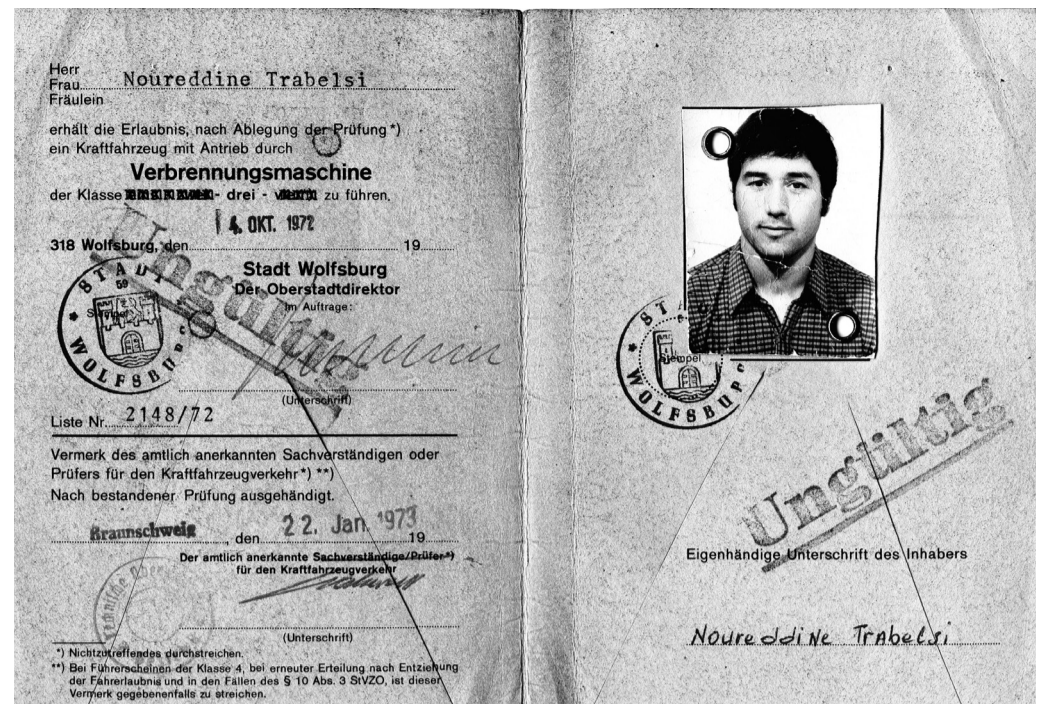 Herr
Frau Noureddine Trabelsi
Fräulein
erhält die Erlaubnis, nach Ablegung der Prüfung*)
ein Kraftfahrzeug mit Antrieb durch
Verbrennungsmaschine
der Klasse - drei - zu führen.
4. OKT. 1972
318 Wolfsburg, den 19
Ungültig
Stadt Wolfsburg
Der Oberstadtdirektor
Im Auftrage:
STADT
59
Stempel
WOLFSBURG
(Unterschrift)
Liste Nr. 2148/72
Vermerk des amtlich anerkannten Sachverständigen oder
Prüfers für den Kraftfahrzeugverkehr*) **)
Nach bestandener Prüfung ausgehändigt.
Braunschweig, den 22. Jan. 1973 19
Der amtlich anerkannte Sachverständige/Prüfer*)
für den Kraftfahrzeugverkehr
(Unterschrift)
*) Nichtzutreffendes durchstreichen.
**) Bei Führerscheinen der Klasse 4, bei erneuter Erteilung nach Entziehung
der Fahrerlaubnis und in den Fällen des § 10 Abs. 3 StVZO, ist dieser
Vermerk gegebenenfalls zu streichen.
STADT
Stempel
WOLFSBURG
Ungültig
Eigenhändige Unterschrift des Inhabers
Noureddine Trabelsi